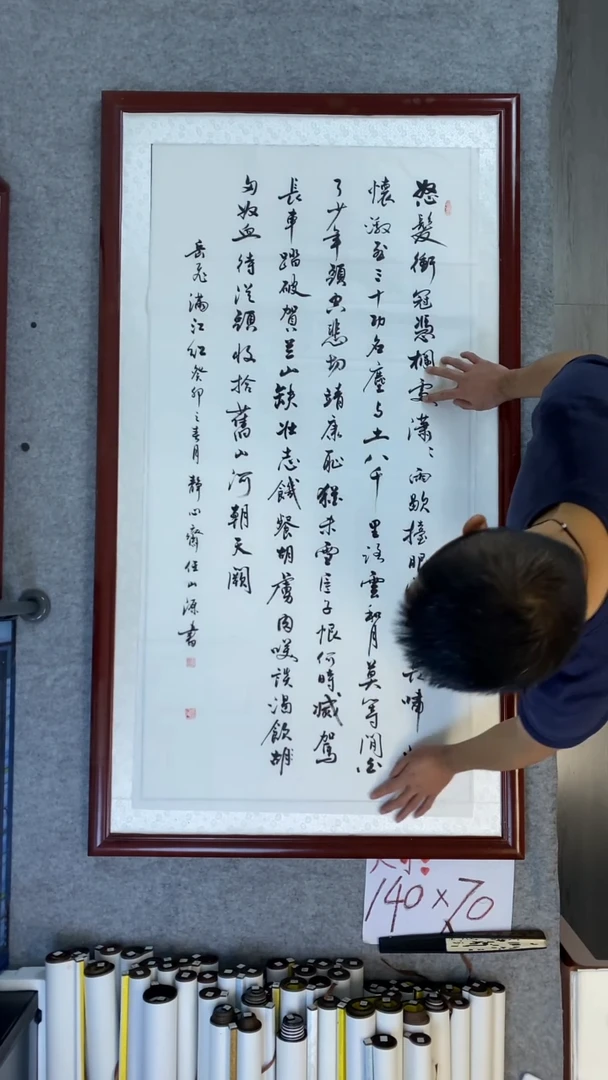 怒髮衝冠憑欄處瀟〻雨歇擡眼長嘯
懷激烈三十功名塵与土八千里路雲和月莫等閒白
了少年頭空悲切靖康恥猶未雪臣子恨何時滅駕
長車踏破賀兰山缺壯志饑餐胡虜肉咲談渴飲
匈奴血待從頭收拾舊山河朝天闕
岳飛滿江紅癸卯之春月靜心齋任山源書
140×70